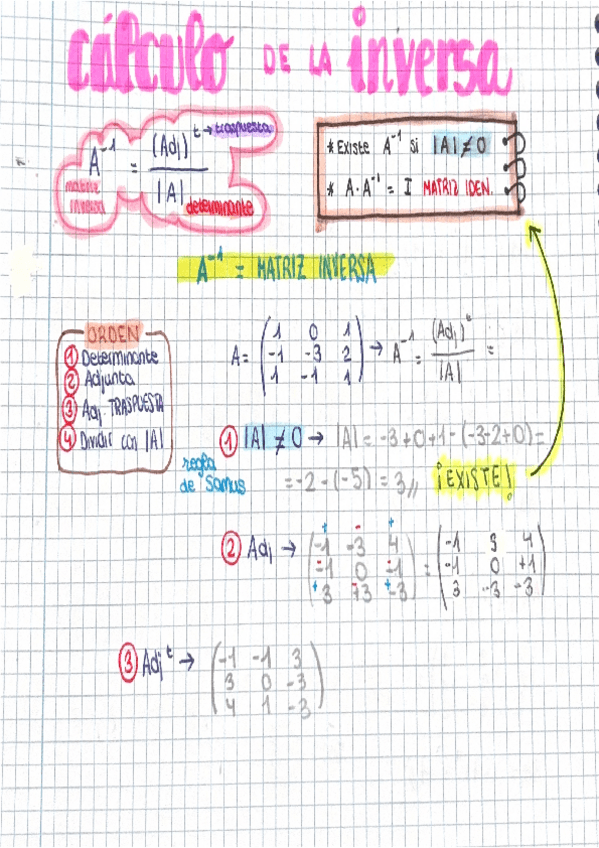 cálculo DE LA inversa
A⁻¹ = (Adj)ᵗ / |A|
t → traspuesta
matriz inversa
determinante
* Existe A⁻¹ si |A| ≠ 0
* A · A⁻¹ = I MATRIZ IDEN.
A⁻¹ = MATRIZ INVERSA
ORDEN
① Determinante
② Adjunta
③ Adj. TRASPUESTA
④ Dividir con |A|
A = ( 1 0 1 / -1 -3 2 / 1 -1 1 ) → A⁻¹ = (Adj)ᵗ / |A| =
① |A| ≠ 0 → |A| = -3+0+1-(-3-2+0) =
regla de Sarrus
= -2-(-5) = 3,, ¡EXISTE!
② Adj → ( -1 -3 4 / -1 0 -1 / 3 +3 -3 ) = ( -1 3 4 / -1 0 +1 / 3 -3 -3 )
+ - +
- -
+ - +
③ Adjᵗ → ( -1 -1 3 / 3 0 -3 / 4 1 -3 )